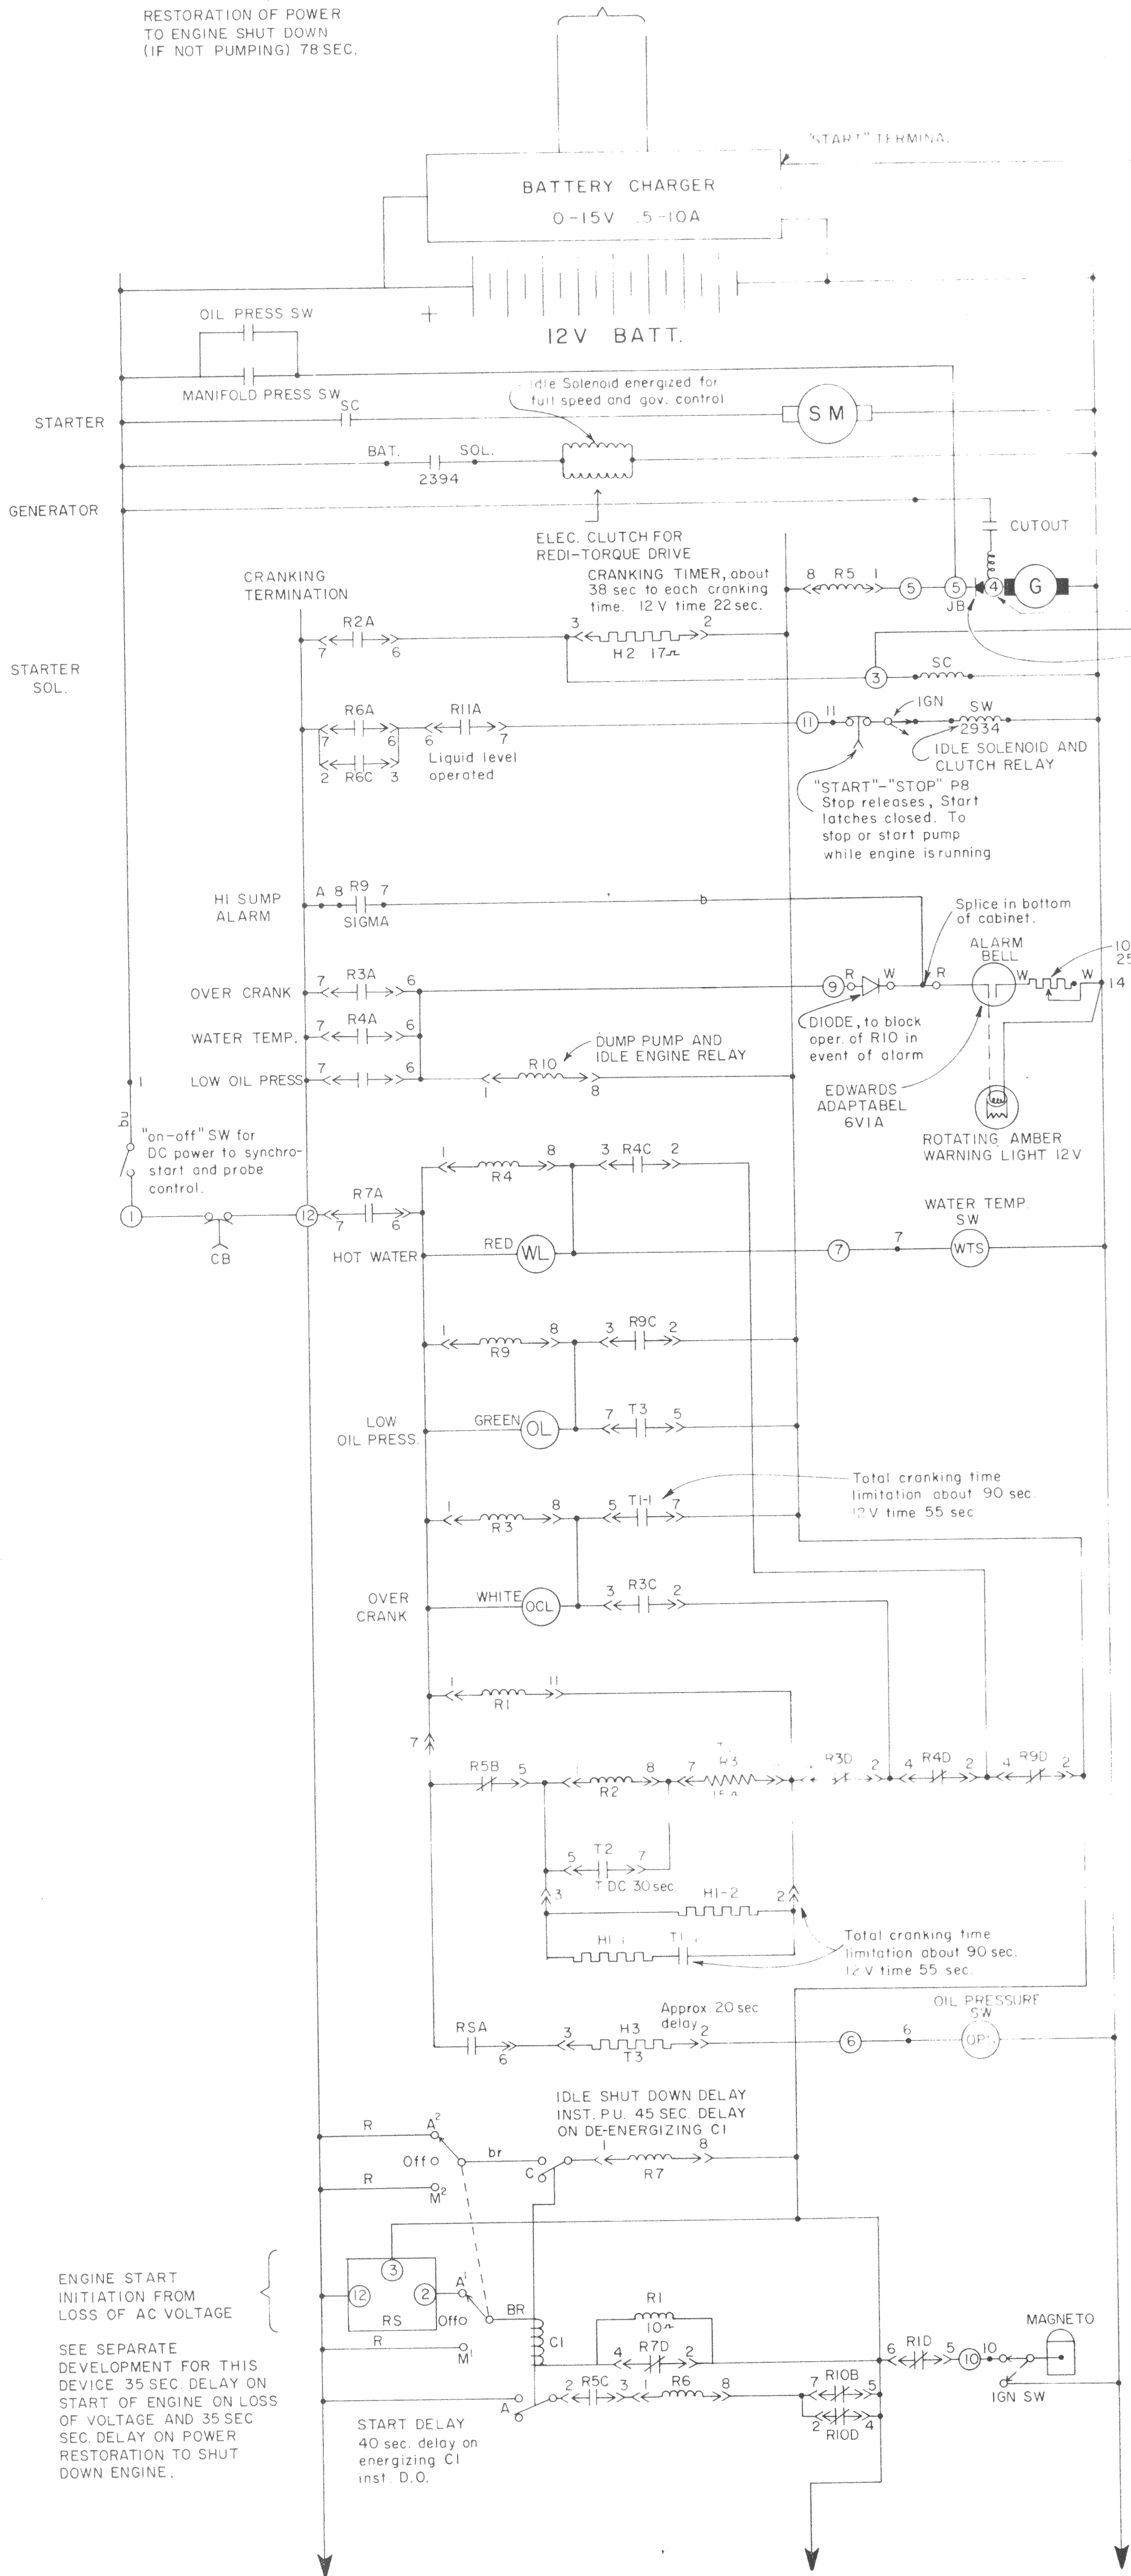 RESTORATION OF POWER
TO ENGINE SHUT DOWN
(IF NOT PUMPING) 78 SEC.
"START" TERMINA
BATTERY CHARGER
0-15V .5-10A
OIL PRESS SW
+
12V BATT.
MANIFOLD PRESS SW
Idle Solenoid energized for
full speed and gov. control
STARTER
SC
SM
BAT.
2394
SOL.
GENERATOR
CUTOUT
ELEC. CLUTCH FOR
REDI-TORQUE DRIVE
CRANKING
TERMINATION
CRANKING TIMER, about
38 sec to each cranking
time. 12V time 22 sec.
8 R5 1
5
5
JB
4
G
R2A
7 6
3 2
H2 17Ω
STARTER
SOL.
3
SC
R6A
7 6
R11A
6 7
2 R6C 3
Liquid level
operated
11
11
IGN
SW
2934
IDLE SOLENOID AND
CLUTCH RELAY
"START"-"STOP" P8
Stop releases, Start
latches closed. To
stop or start pump
while engine is running
HI SUMP
ALARM
A 8 R9 7
SIGMA
b
Splice in bottom
of cabinet.
ALARM
BELL
10
25
OVER CRANK
7 R3A 6
9
R
W
R
W
W
14
WATER TEMP.
7 R4A 6
DIODE, to block
oper. of R10 in
event of alarm
DUMP PUMP AND
IDLE ENGINE RELAY
LOW OIL PRESS
7 6
R10
1 8
EDWARDS
ADAPTABEL
6V1A
ROTATING AMBER
WARNING LIGHT 12V
1
bu
"on-off" SW for
DC power to synchro-
start and probe
control.
1
CB
12
R7A
7 6
1 8
R4
3 R4C 2
HOT WATER
RED
WL
7
7
WATER TEMP.
SW
WTS
1 8
R9
3 R9C 2
LOW
OIL PRESS.
GREEN
OL
7 T3 5
Total cranking time
limitation about 90 sec.
12V time 55 sec
1 8
R3
5 T1-1 7
OVER
CRANK
WHITE
OCL
3 R3C 2
1 11
R1
7
R5B
5
R2
8
7 R3
R3D
2
4 R4D 2
4 R9D 2
5 T2 7
TDC 30 sec.
3
H1-2
2
Total cranking time
limitation about 90 sec.
12V time 55 sec.
OIL PRESSURE
SW
Approx. 20 sec
delay
RSA
6
3 H3 2
T3
6
6
IDLE SHUT DOWN DELAY
INST. P.U. 45 SEC. DELAY
ON DE-ENERGIZING C1
R
A²
Off
br
C
1 8
R7
R
M²
ENGINE START
INITIATION FROM
LOSS OF AC VOLTAGE
3
12
2
RS
A¹
Off
BR
R
M¹
C1
R1
10Ω
4 R7D 2
6 R1D 5
10
10
MAGNETO
IGN SW
SEE SEPARATE
DEVELOPMENT FOR THIS
DEVICE 35 SEC. DELAY ON
START OF ENGINE ON LOSS
OF VOLTAGE AND 35 SEC
SEC. DELAY ON POWER
RESTORATION TO SHUT
DOWN ENGINE.
A
2 R5C 3
1 R6 8
7 R10B 5
2 R10D 4
START DELAY
40 sec. delay on
energizing C1
inst. D.O.